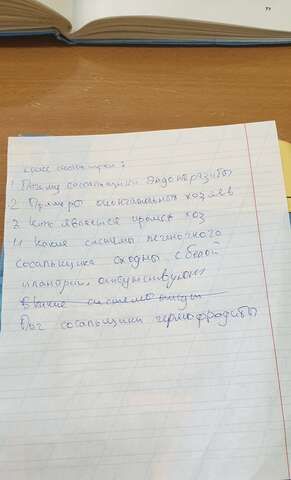 класс сосальщики:
1 Почему сосальщики эндопаразиты
2 Примеры окончательных хозяев
3 Кто является промеж хоз
4 Какие системы печеночного
сосальщика сходны с белой
планарии, отсутствуют
Какие системы
Поч сосальщики гермофродиты